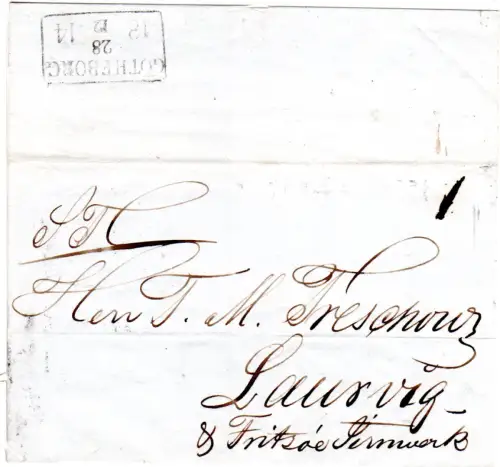 GÖTHEBORG
28
12
18 14
S T
Herr T. M. Treschow
Laurvig
& Fritsöe Jernwerk